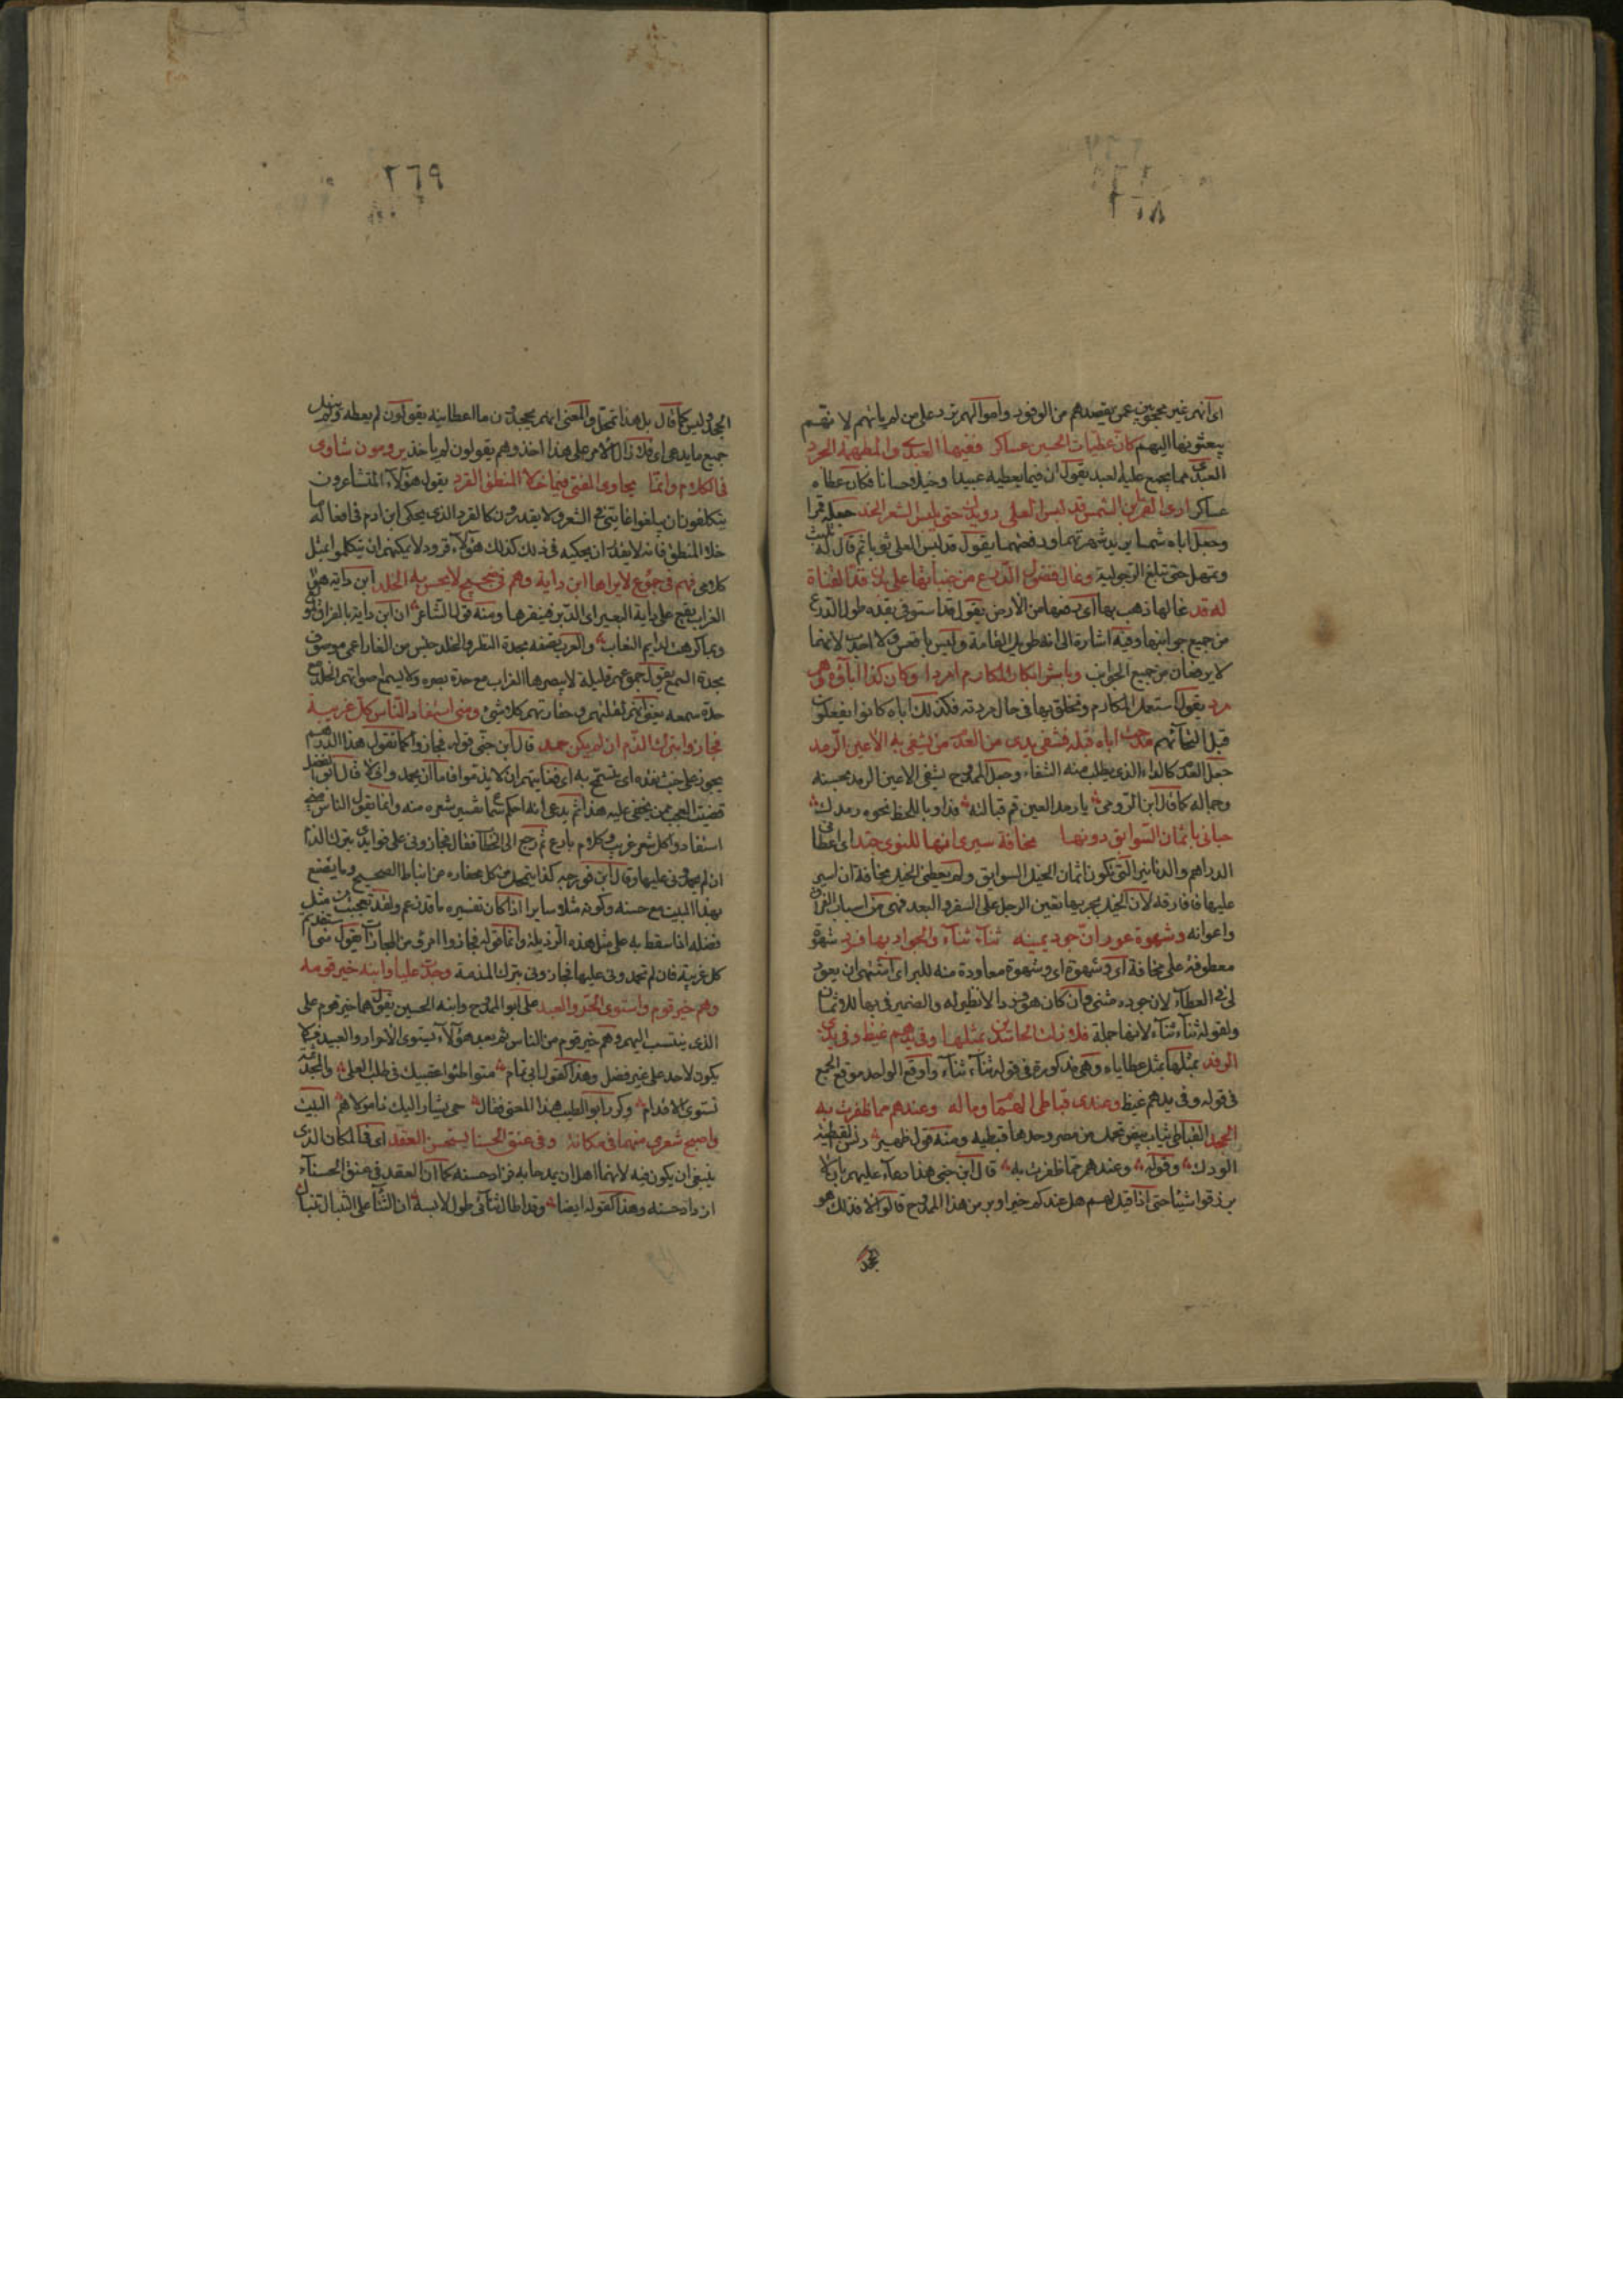 ٢٦٨
اى انهم غير محجوبين عمن يقصدهم من الوفود واموالهم ترد على من لم ياتهم لانهم
يبعثونها اليهم كأن عطيات الحسين عساكر ففيها العبدى والمطهمة الجرد
العبدى مما يجمع عليه العبد يقول ان فيما يعطيه عبيدا وخيلا حسانا فكان عطاه
عساكر ارى القمر ابن الشمس قد لبس العلى رويدك حتى يلبس الشعر الخد جعله قمرا
وجعل اباه شمسا يريد شهرتهما ورفعتهما يقول قد لبس العلى ثوبا ثم قال له تلبث
وتمهل حتى تبلغ الرجولية وغال فضول الدرع من جنباتها على بدن قد القناة
له قد غالها ذهب بها اى رفعها من الارض يقول قد استوفى بقده طول الدرع
من جميع جوانبها وفيه اشارة الى انه طويل القامة وليس باقعس ولا احدب لانهما
لا يرفعان من جميع الجوانب وباشر ابكار المكارم امردا وكان كذا آباؤه وهم
مرد يقول استعمل المكارم وتخلق بها فى حال مردته فكذلك اباه كانوا يفعلون
قبل التحائهم مدحت اباه قبله فشفى يدى من العدم من تشفى به الاعين الرمد
جعل العدم كالداء الذى يطلب منه الشفاء وجعل الممدوح يشفى الاعين الرمد بحسنه
وجماله كما قال ابن الرومى يا رمد العين قم قبالته فداو باللحظ نحوه رمدك
حبانى باثمان السوابق دونها مخافة سيرى انها للنوى جند اى اعطانى
الدراهم والدنانير التى تكون اثمان الخيل السوابق ولم يعطنى الخيل مخافة ان اسير
عليها فافارقه لان الخيل بجريها تعين الرجل على السفر والبعد فهى من اسباب الفراق
واعوانه وشهوة عود ان جود يمينه ثناء ثناء والجواد بها فرد شهوة
معطوفة على مخافة اى وشهوة اى وشهوة معاودة منه للبر اى اشتهى ان يعود
لى فى العطاء لان جوده مثنى وان كان هو فردا لا نظير له والضمير فى بها للاثمان
ولقوله ثناء ثناء لانها جملة فلا زلت القى الحاسدين بمثلها وفى يدهم غيظ وفى يدى
الرفد بمثلها بمثل عطاياه وهى مذكورة فى قوله ثناء ثناء واوقع الواحد موقع الجمع
فى قوله وفى يدهم غيظ وعندى قباطى الهمام وماله وعندهم مما ظفرت به
الجحد القباطى ثياب بيض تحمل من مصر واحدها قبطيه ومنه قول زهير دنس القبطية
الودك وقوله وعندهم مما ظفرت به قال ابن جنى هذا دعاء عليهم بان لا
يرزقوا شيئا حتى اذا قيل لهم هل عندكم خير او بر من هذا الممدوح قالوا لا فذلك هو
الجحد
٢٦٩
الجحد وليس كما قال بل هذا تمحل والمعنى انهم يجحدون ما اعطانيه يقولون لم يعطه ولم ينل
جميع ما يدعى اى فلا زال الامر على هذا آخذ وهم يقولون لم ياخذ يرومون شاوى
فى الكلام وانما يحاكى الفتى فيما خلا المنطق القرد يقول هؤلاء المتشاعرون
يتكلفون ان يبلغوا غايتى فى الشعر ولا يقدرون كالقرد الذى يحكى ابن ادم فى افعاله ما
خلا المنطق فانه لا يقدر ان يحكيه فى ذلك كذلك هؤلاء قرود لا يمكنهم ان يتكلموا بمثل
كلامى فهم فى جموع لا يراها ابن داية وهم فى ضجيج لا يحس به الخلد ابن داية هو
الغراب يقع على داية البعير اى الدبر فينقرها ومنه قول الشاعر ان ابن داية بالفراق لمولع
وبما كرهت لدايم التنعاب والعرب تصفه بحدة النظر والخلد جنس من الفار اعمى موصوف
بحدة السمع يقول جموعهم قليلة لا يبصرها الغراب مع حدة بصره ولا يسمع صواتهم الخلد مع
حدة سمعه يعنى انهم لقلتهم وحقارتهم كلا شئ ومنى استفاد الناس كل غريبة
فجازوا بترك الذم ان لم يكن حمد قال ابن جنى قوله فجازوا كما تقول هذا الدرهم
يجوز على خبث نقده اى يتسمح به اى فغايتهم ان لا يذموا فاما ان يحمدوا فلا قال ابو الفضل
قضيت العجب ممن يخفى عليه هذا ثم يدعى انه احكم سماع تفسير شعره منه وانما يقول الناس منى
استفادوا كل شعر غريب وكلام بارع ثم رجع الى الخطاب فقال فجازونى على فوايدى بترك الذم
ان لم يحمدونى عليها وقال ابن فورجه كذا يتمحل من كل محفاره من انباط الصحيح وما يصنع
بهذا البيت مع حسنه وكونه مثلا سايرا اذا كان تفسيره ما قد زعم ولقد تعجبت من مثل
فضله اذا سقط به على مثل هذه الرذيلة وانما قوله فجازوا امر من المجازات يقول منى استفدتم
كل غريبة فان لم تحمدونى عليها فجازونى بترك المذمة وجدت عليا وابنه خير قومه
وهم خير قوم واستوى الحر والعبد على ابو الممدوح وابنه الحسين يقول هما خير قوم على
الذى ينتسب اليهم وهم خير قوم من الناس ثم بعد هؤلاء يستوى الاحرار والعبيد فلا
يكون لاحد على غيره فضل وهذا كقول ابى تمام متواطئوا عقبيك فى طلب العلى والمجد ثمة
تستوى الاقدام وكرر ابو الطيب هذا المعنى فقال حتى يشار اليك ذا مولاهم البيت
واصبح شعرى منهما فى مكانه وفى عنق الحسناء يستحسن العقد اى فى المكان الذى
ينبغى ان يكون فيه لانهما اهل ان يمدحا به فزاد حسنه كما ان العقد فى عنق الحسناء
ازداد حسنه وهذا كقوله ايضا وقد اطال ثنائى طول لابسه ان الثناء على التنبال تنبال